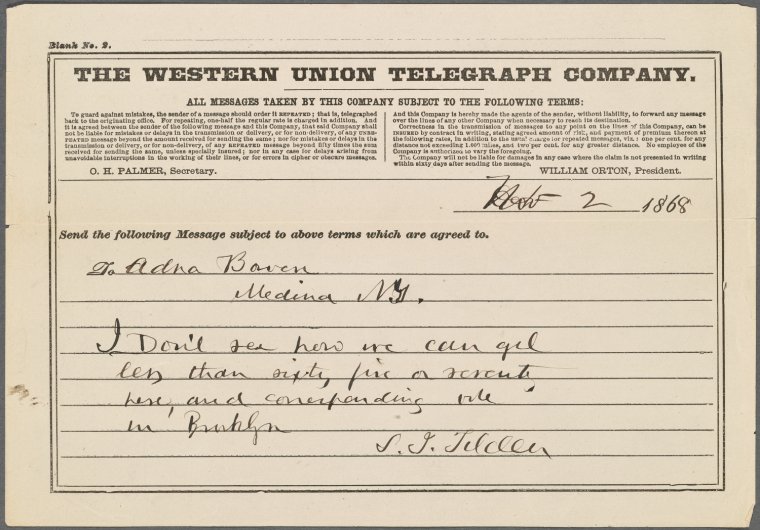 Blank No. 2.
THE WESTERN UNION TELEGRAPH COMPANY.
ALL MESSAGES TAKEN BY THIS COMPANY SUBJECT TO THE FOLLOWING TERMS:
To guard against mistakes, the sender of a message should order it REPEATED; that is, telegraphed
back to the originating office. For repeating, one-half the regular rate is charged in addition. And
it is agreed between the sender of the following message and this Company, that said Company shall
not be liable for mistakes or delays in the transmission or delivery, or for non-delivery, of any UNRE-
PEATED message beyond the amount received for sending the same; nor for mistakes or delays in the
transmission or delivery, or for non-delivery, of any REPEATED message beyond fifty times the sum
received for sending the same, unless specially insured; nor in any case for delays arising from
unavoidable interruptions in the working of their lines, or for errors in cipher or obscure messages.
And this Company is hereby made the agents of the sender, without liability, to forward any message
over the lines of any other Company when necessary to reach its destination.
Correctness in the transmission of messages to any point on the lines of this Company, can be
INSURED by contract in writing, stating agreed amount of risk, and payment of premium thereon at
the following rates, in addition to the usual charge for repeated messages, viz.: one per cent. for any
distance not exceeding 1,000 miles, and two per cent. for any greater distance. No employee of the
Company is authorized to vary the foregoing.
The Company will not be liable for damages in any case where the claim is not presented in writing
within sixty days after sending the message.
O. H. PALMER, Secretary.
WILLIAM ORTON, President.
2 1868
Send the following Message subject to above terms which are agreed to.
To Adna Bowen
Medina N.Y.
I Don't see how we can get
less than sixty five or seventy
here, and corresponding vote
in Brooklyn
S. J. Tilden